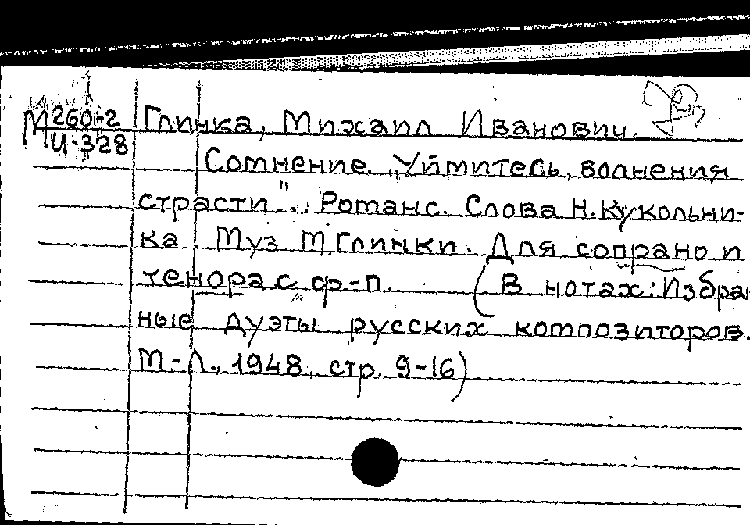 М260-2
И-328
Глинка, Михаил Иванович.
Сомнение. „Уймитесь, волнения
страсти". Романс. Слова Н. Кукольни-
ка Муз М Глинки. Для сопрано и
тенора с ф-п. (В нотах: Избран
ные дуэты русских композиторов.
М-Л., 1948, стр. 9-16)